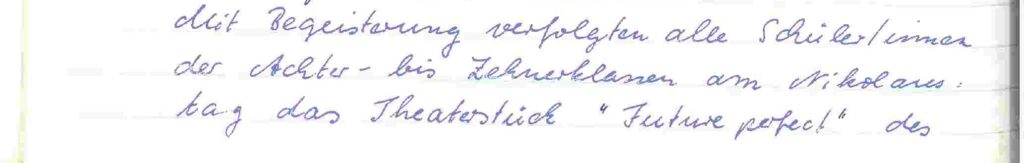 Mit Begeisterung verfolgten alle Schüler/innen
der Achter- bis Zehnerklassen am Nikolaus-
tag das Theaterstück "Future perfect" des